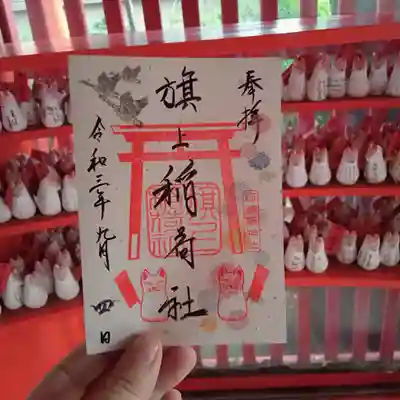 奉拝
旗上稲荷社
令和三年九月四日